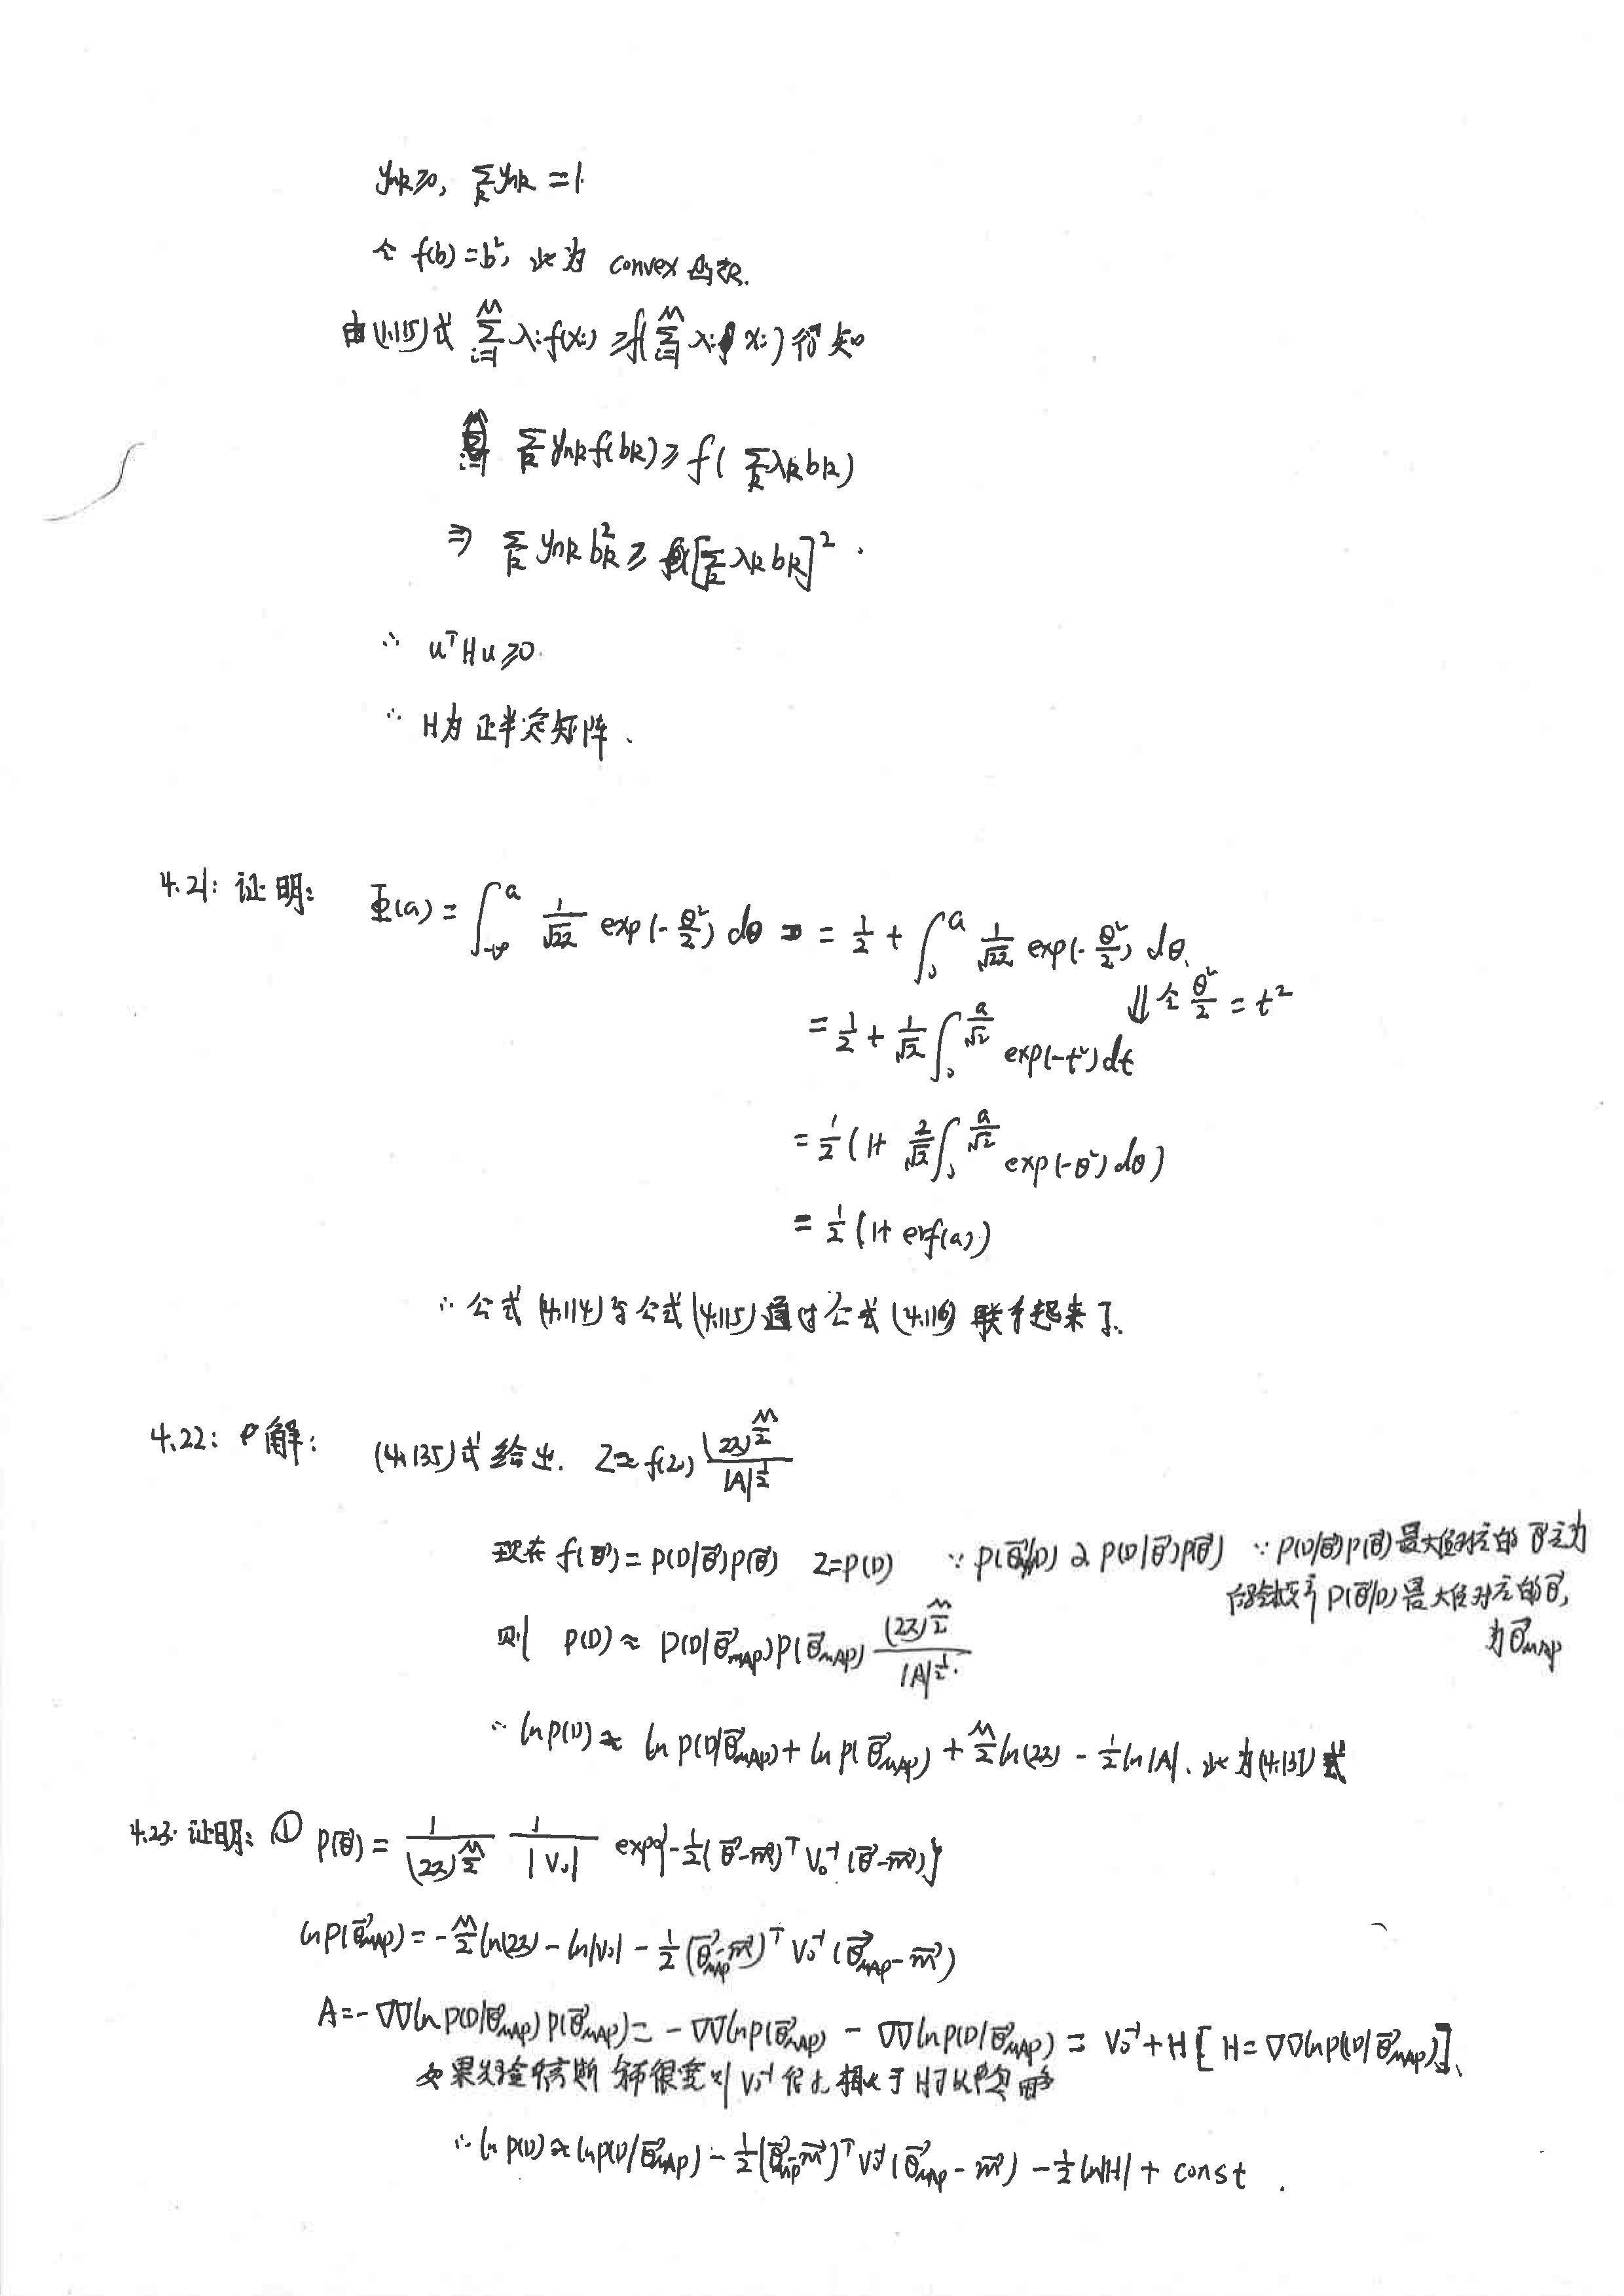 ynk≥0, ∑_k ynk = 1.
令 f(b)=b², 此为 convex 函数.
由(1.115)式 ∑_{i=1}^{M} λi f(xi) ≥ f(∑_{i=1}^{M} λi xi) 得知
∑_k ynk f(bk) ≥ f( ∑_k λk bk)
⇒ ∑_k ynk bk² ≥ [∑_k λk bk]².
∴ uᵀHu≥0.
∴ H为正半定矩阵.
4.21: 证明: Φ(a) = ∫_{-∞}^{a} 1/√(2π) exp(-θ²/2) dθ = 1/2 + ∫_0^a 1/√(2π) exp(-θ²/2) dθ.
⇓ 令 θ²/2 = t²
= 1/2 + 1/√π ∫_0^{a/√2} exp(-t²)dt
= 1/2 (1+ 2/√π ∫_0^{a/√2} exp(-θ²)dθ)
= 1/2 (1+ erf(a))
∴ 公式 (4.114)与公式(4.115)通过公式(4.116) 联系起来了.
4.22: 解: (4.135)式给出. Z≈f(z₀) (2π)^{M/2} / |A|^{1/2}
现在 f(θ⃗)=P(D|θ⃗)P(θ⃗) Z=P(D) ∵ P(θ⃗|D) ∝ P(D|θ⃗)P(θ⃗) ∵ P(D|θ⃗)P(θ⃗)最大值对应的 θ⃗ 应为
后验概率 P(θ⃗|D)最大值对应的θ⃗,
为 θ⃗_MAP
则 P(D) ≈ P(D|θ⃗_MAP)P(θ⃗_MAP) (2π)^{M/2} / |A|^{1/2}.
∴ ln P(D) ≈ ln P(D|θ⃗_MAP) + ln P(θ⃗_MAP) + M/2 ln(2π) - 1/2 ln|A|. 此为(4.137)式
4.23: 证明: ① P(θ⃗) = 1/(2π)^{M/2} 1/|V₀| exp{-1/2(θ⃗-m⃗)ᵀV₀⁻¹(θ⃗-m⃗)}
ln P(θ⃗_MAP) = -M/2 ln(2π) - ln|V₀| - 1/2 (θ⃗_MAP-m⃗)ᵀ V₀⁻¹ (θ⃗_MAP-m⃗)
A = -∇∇ln P(D|θ⃗_MAP)P(θ⃗_MAP) = -∇∇lnP(θ⃗_MAP) - ∇∇lnP(D|θ⃗_MAP) = V₀⁻¹+H [H=∇∇lnP(D|θ⃗_MAP)].
如果先验 分布很宽 则 V₀⁻¹ 很 相比于 H可以忽略
∴ ln P(D) ≈ lnP(D|θ⃗_MAP) - 1/2(θ⃗_MAP-m⃗)ᵀV₀⁻¹(θ⃗_MAP-m⃗) - 1/2 ln|H| + const.